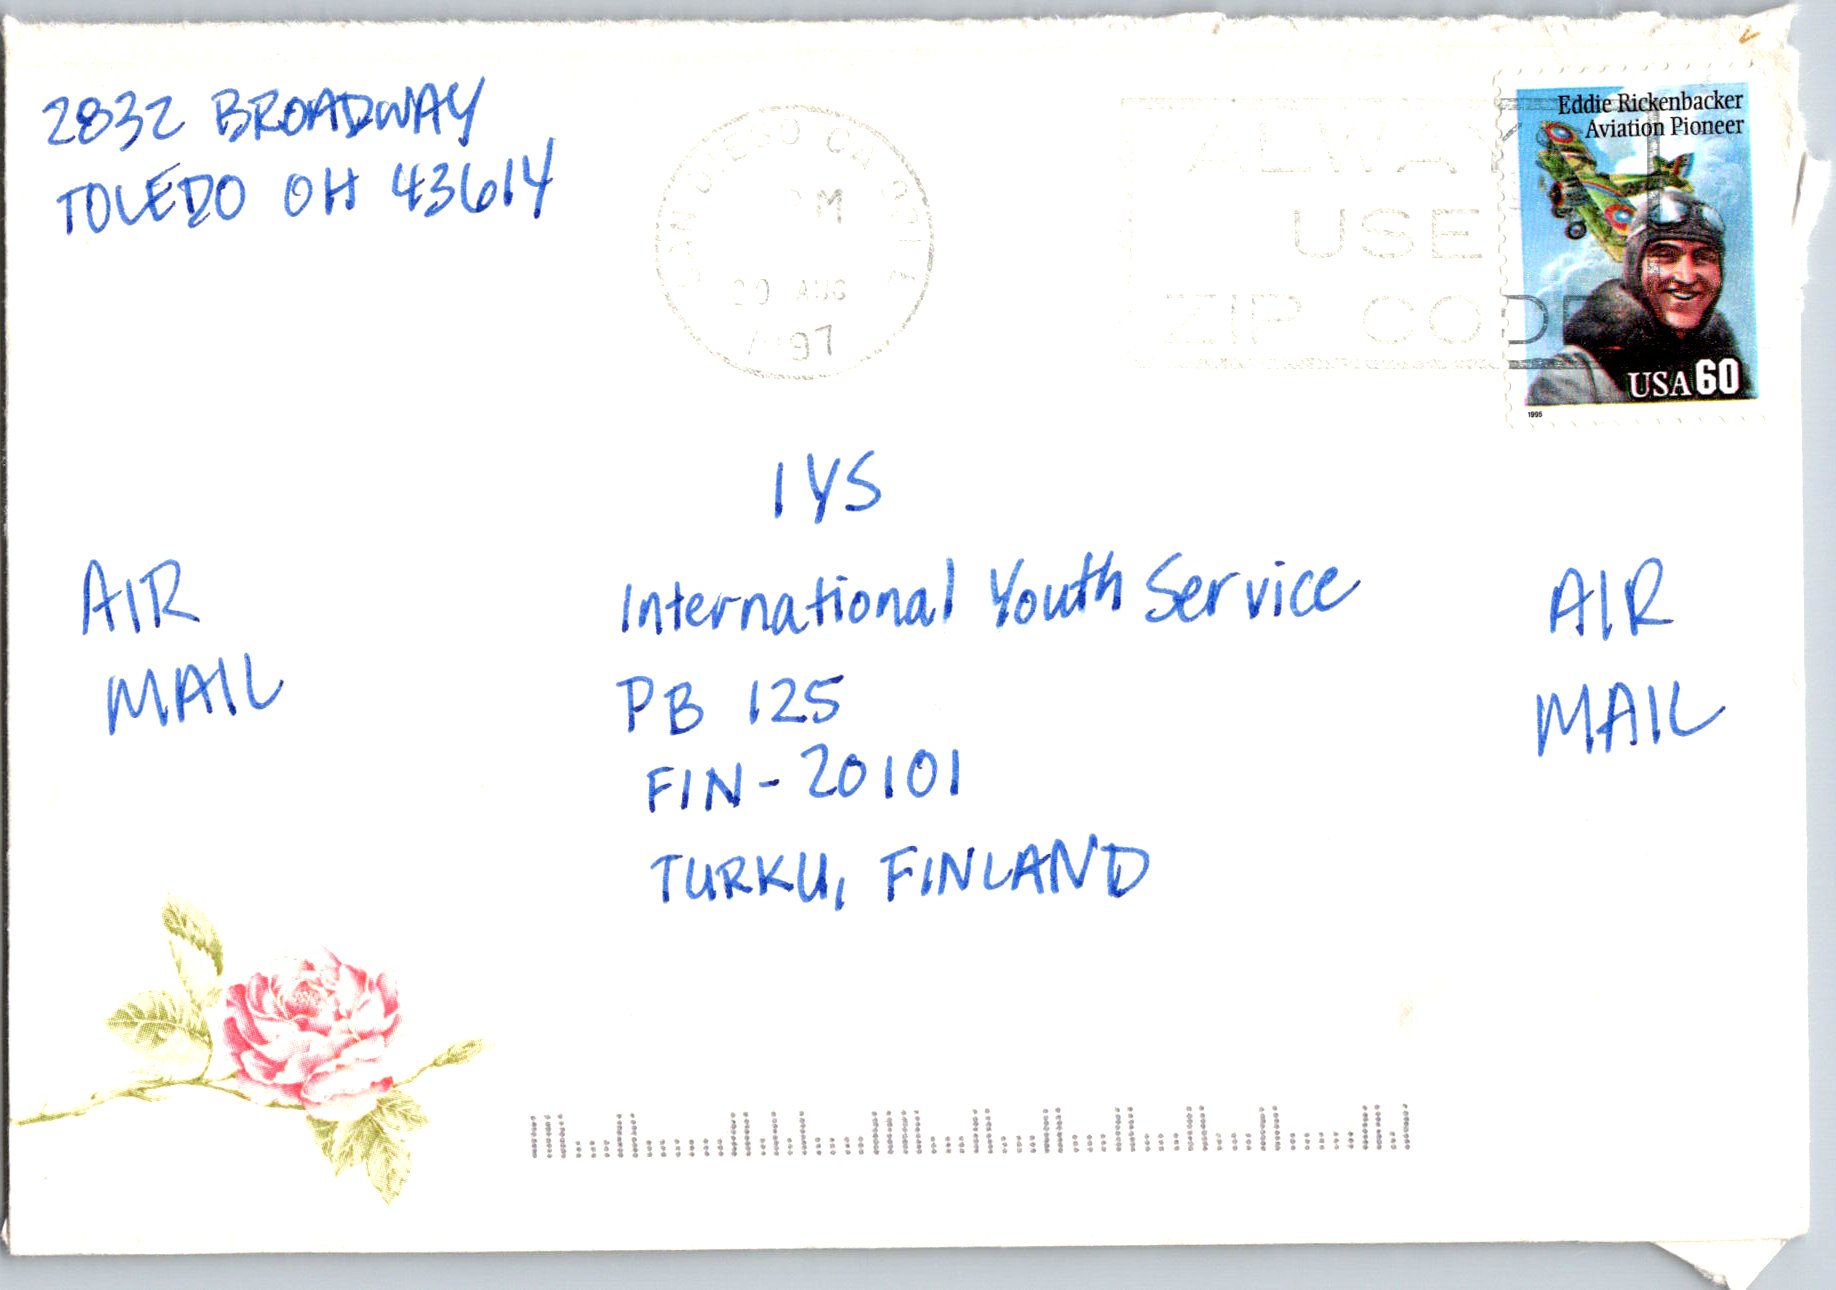 2832 BROADWAY
TOLEDO OH 43614
SAN DIEGO CA
PM
AUG
1997
ALWAYS
USE
ZIP CODE
Eddie Rickenbacker
Aviation Pioneer
USA 60
1995
IYS
International Youth Service
PB 125
FIN-20101
TURKU, FINLAND
AIR
MAIL
AIR
MAIL